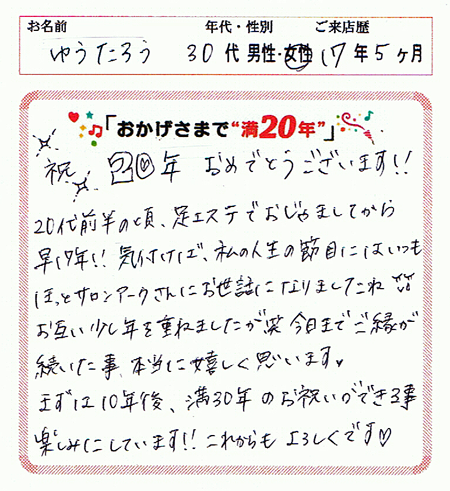 お名前 年代・性別 ご来店歴
ゆうたろう 30代 男性・女性 17年5ヶ月
「おかげさまで“満20年”」
祝 20年 おめでとうございます!!
20代前半の頃、足エステでおじゃましてから
早17年!! 気付けば、私の人生の節目にはいつも
ほっとサロンアークさんにお世話になりましたね
お互い少し年を重ねましたが笑 今日までご縁が
続いた事、本当に嬉しく思います♥
まずは10年後、満30年のお祝いができる事
楽しみにしています!! これからもよろしくです♡